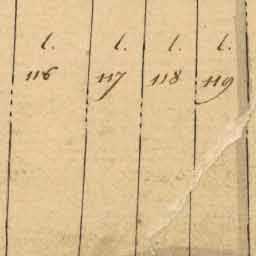 l. l. l. l.
116 117 118 119